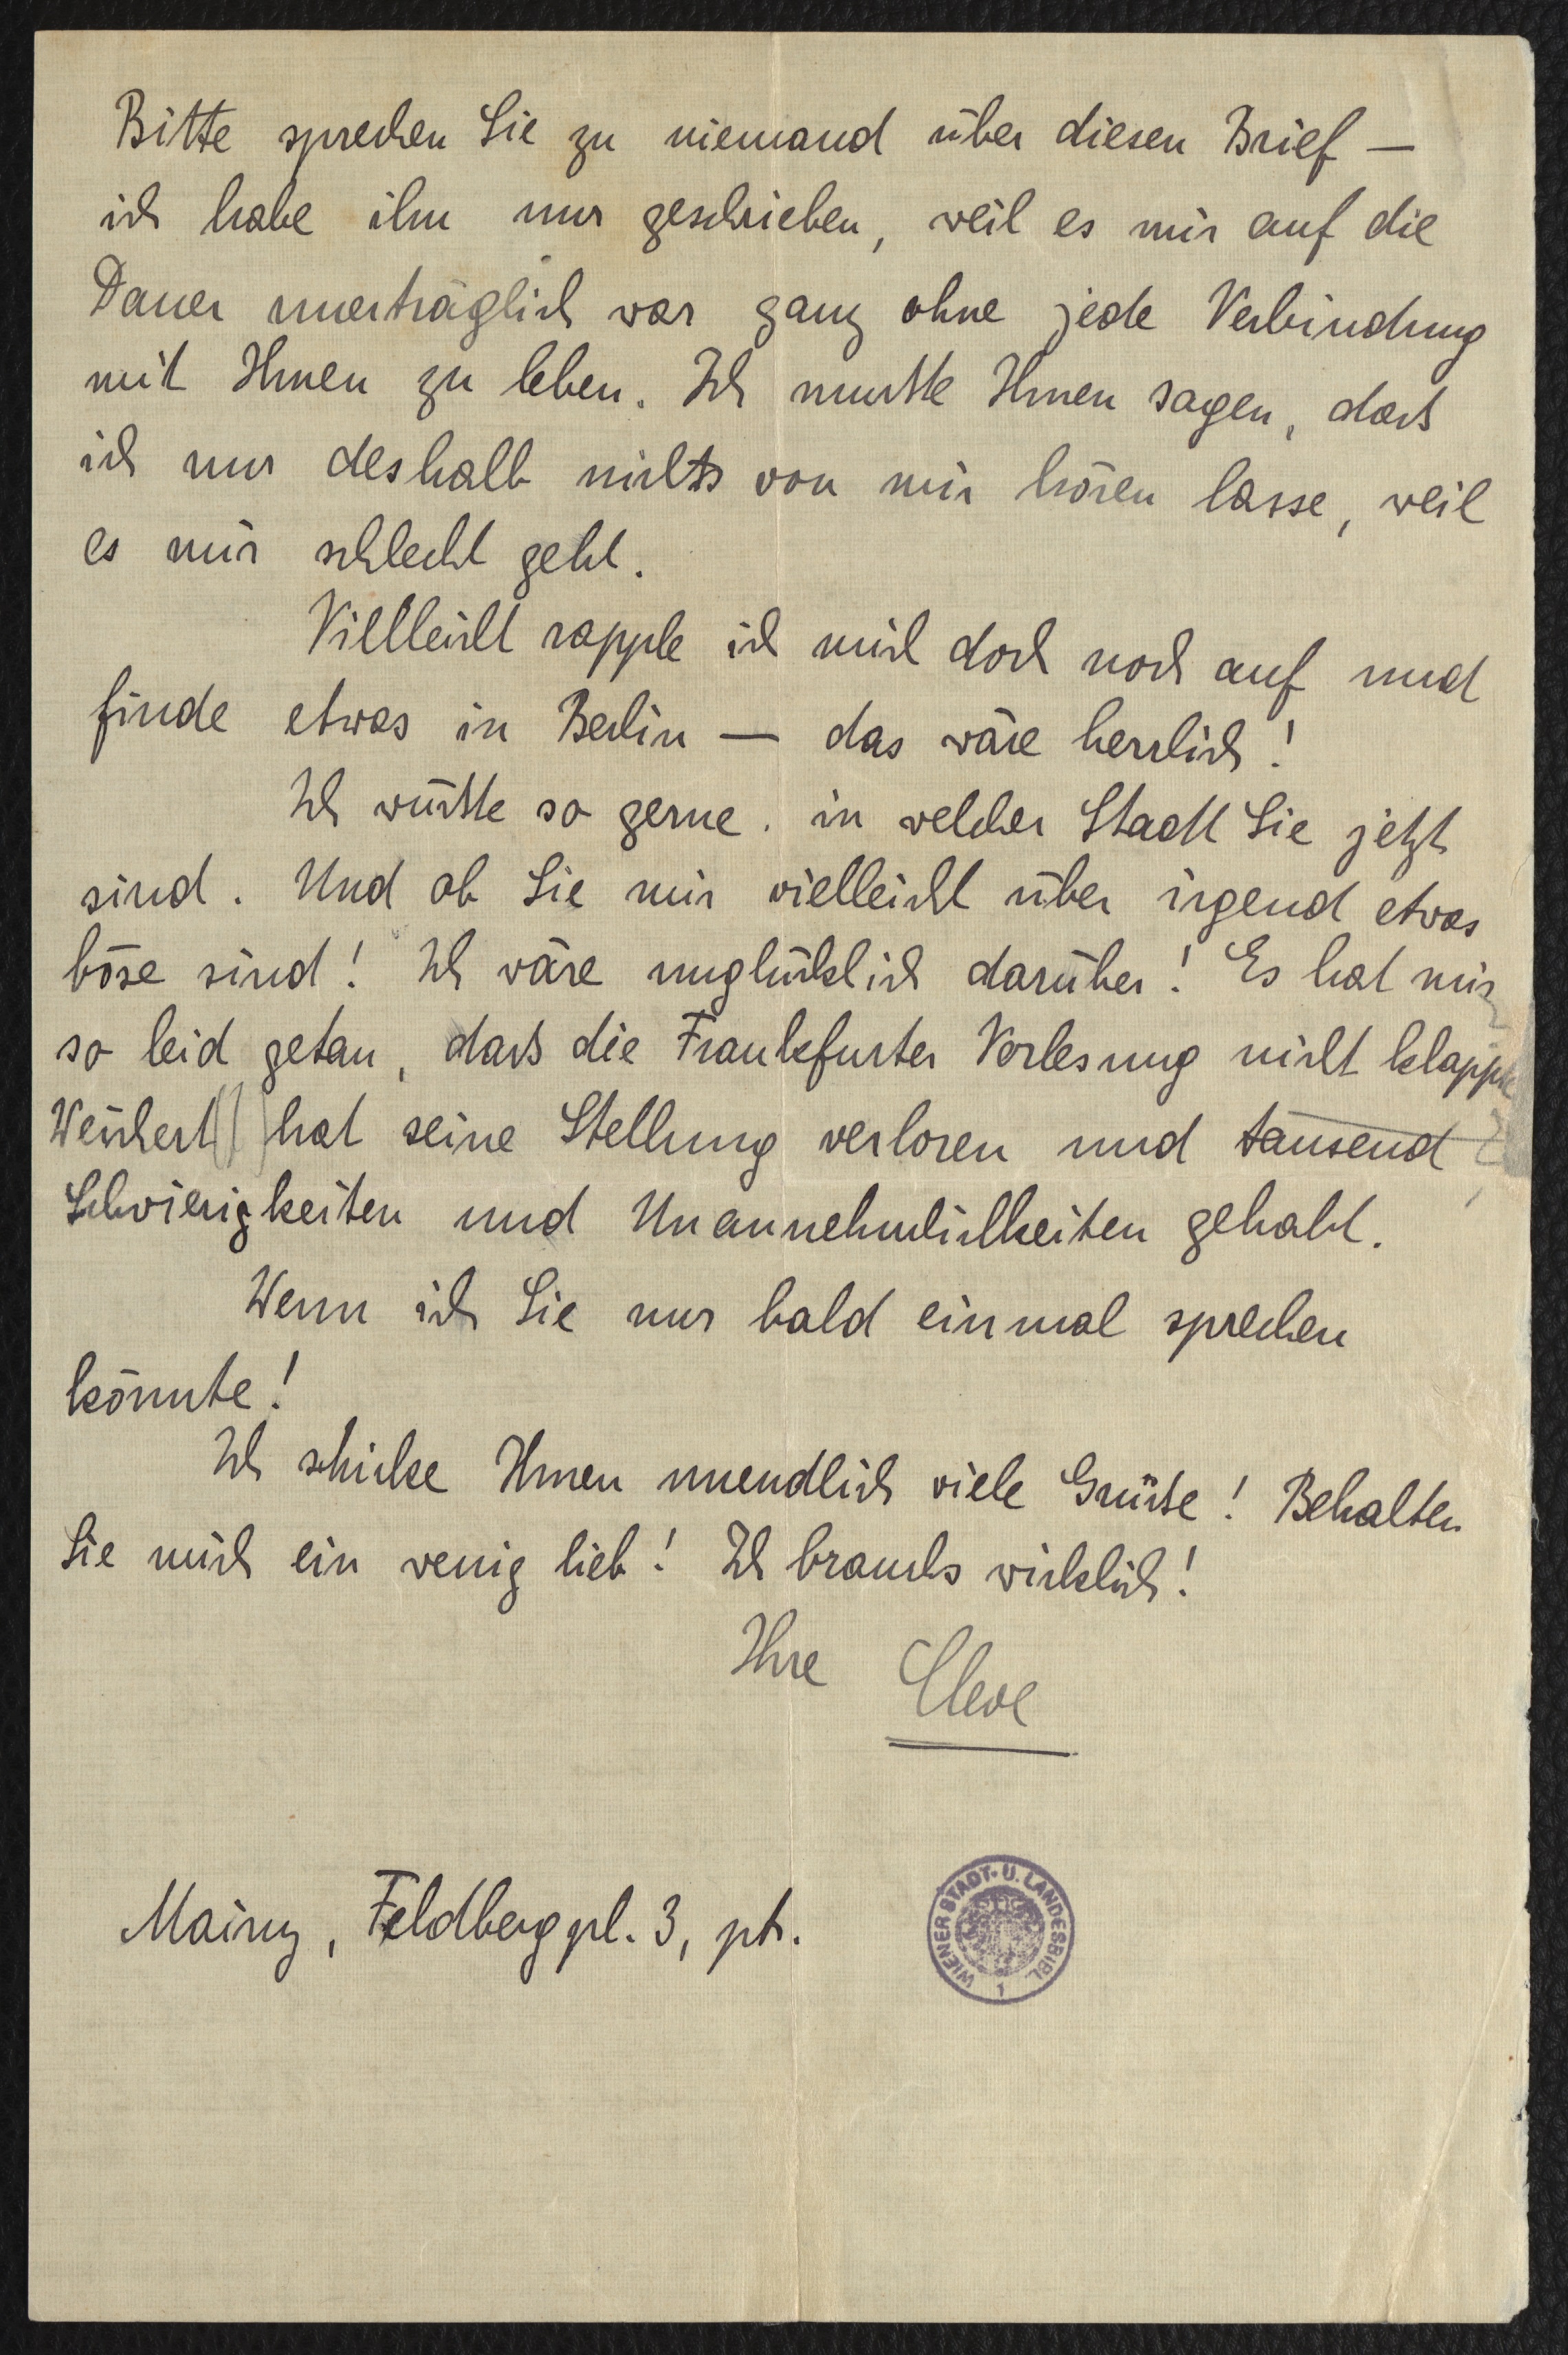 Bitte sprechen Sie zu niemand über diesen Brief —
ich habe ihn nur geschrieben, weil es mir auf die
Dauer unerträglich war ganz ohne jede Verbindung
mit Ihnen zu leben. Ich musste Ihnen sagen, dass
ich nur deshalb nichts von mir hören lasse, weil
es mir schlecht geht.
Villeicht rapple ich mich doch noch auf und
finde etwas in Berlin — das wäre herrlich!
Ich wüsste so gerne. in welcher Stadt Sie jetzt
sind. Und ob Sie mir vielleicht über irgend etwas
böse sind! Ich wäre unglücklich darüber! Es hat mir
so leid getan, dass die Frankfurter Vorlesung nicht klappte
Weichert hat seine Stellung verloren und tausend
Schwierigkeiten und Unannehmlichkeiten gehabt.
Wenn ich Sie nur bald einmal sprechen
könnte!
Ich schicke Ihnen unendlich viele Grüsse! Behalten
Sie mich ein wenig lieb! Ich brauchs wirklich!
Ihre Cleve
Mainz, Feldbergpl. 3, pt.
WIENER STADT- U. LANDESBIBL.
1